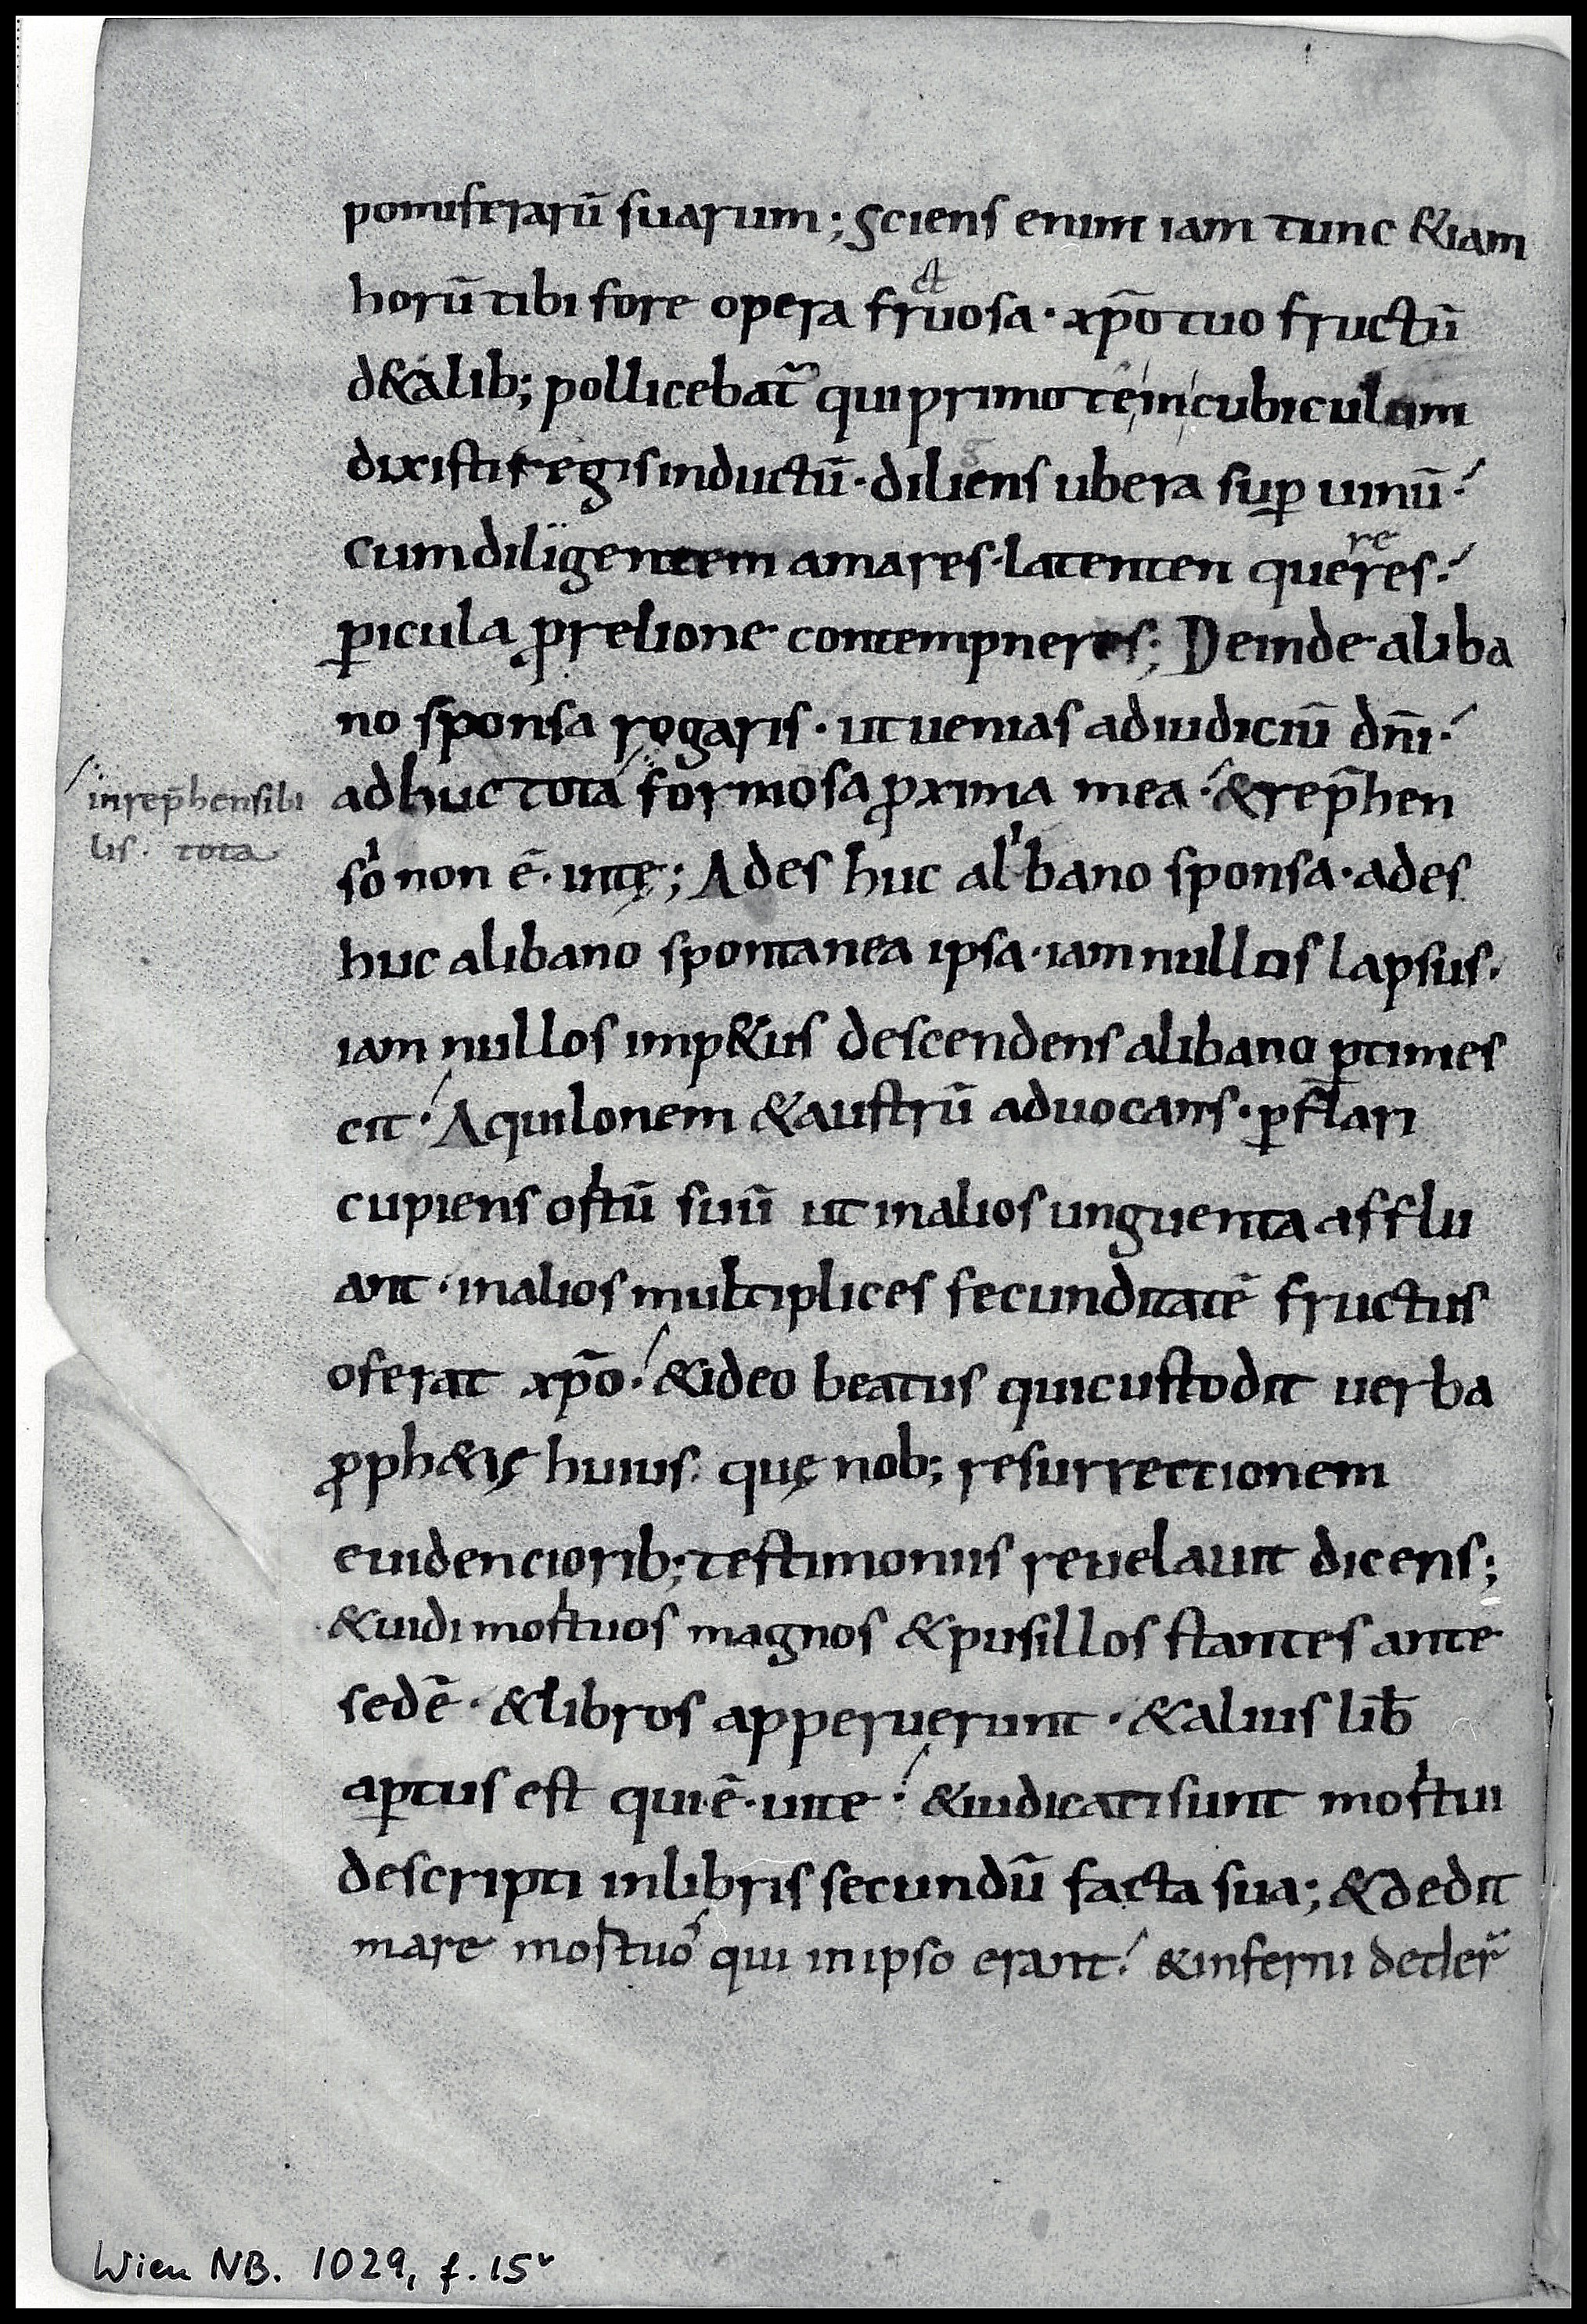 pomiferarū suarum; Sciens enim iam tunc &iam
horū tibi fore opera fructuosa · xp̄o tuo fructū
d&alib; pollicebat̃ qui primo te in cubiculum
dixisti regis inductū · diligens ubera sup̱ uinū ·́
cum diligentem amares · latenten quereres ·́
p̱icula p̱relione contempneres; Deinde aliba
no sponsa rogaris · ut uenias adiudiciū dn̄i ·́
inrep̄hensibi
lis. tota
adhuc tota formosa ꝓxima mea ·́ &rep̄hen
sio non ē · inte; Ades huc alibano sponsa · ades
huc alibano spontanea ipsa · iam nullos lapsus ·
iam nullos imp&us descendens alibano p̱times
cit ·́ Aquilonem &austrū aduocans · p̱flari
cupiens ortū suū ut inalios unguenta afflu
ant · inalios multiplices fecunditatē fructus
oferat xp̄o ·́ &ideo beatus qui custodit uerba
ꝓph&ię huius · quę nob; resurrectionem
euidenciorib; testimoniis reuelauit dicens;
&uidi mortuos magnos &pusillos stantes ante
sedē · &libros apperuerunt · &alius lib̄
ap̱tus est qui · ē · uite ·́ &iudicati sunt mortui
descripti inlibris secundū facta sua; &dedit
mare mortuos qui inipso erant ·́ &inferni deder̄
Wien NB. 1029, f. 15v